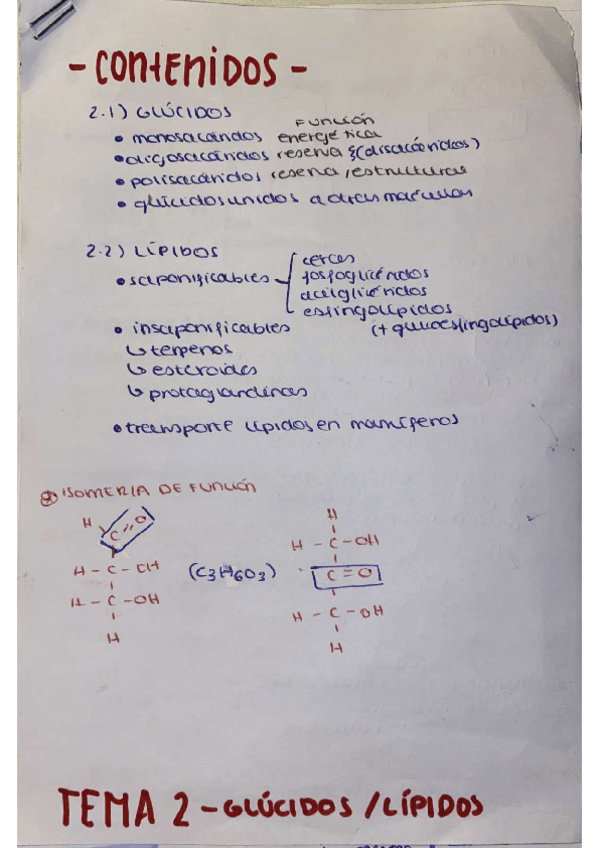 - CONTENIDOS -
2.1) GLÚCIDOS
FUNCIÓN
• monosacáridos energética
• oligosacáridos reserva (disacáridos)
• polisacáridos reserva, estructuras
• glúcidos unidos a otras moléculas
2.2) LÍPIDOS
• saponificables
ceras
fosfoglicéridos
acilglicéridos
esfingolípidos
(+ glucoesfingolípidos)
• insaponificables
↳ terpenos
↳ esteroides
↳ protaglandinas
• transporte lípidos en mamíferos
ISOMERIA DE FUNCIÓN
H C=O
H - C - OH
H - C - OH
H
(C3H6O3)
H
H - C - OH
C = O
H - C - OH
H
TEMA 2 - GLÚCIDOS / LÍPIDOS